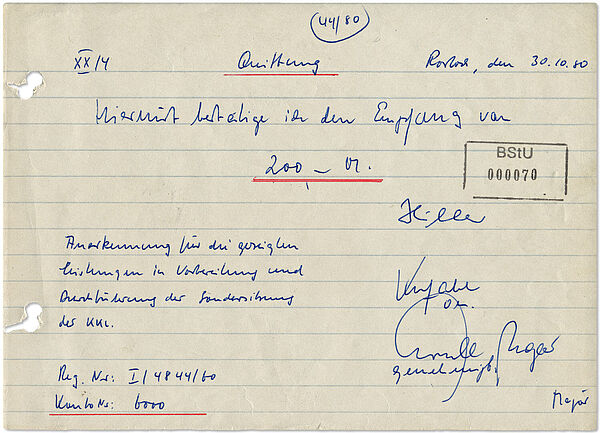 44/80
XX/4 Quittung Rostock, den 30.10.80
Hiermit bestätige ich den Empfang von
200,- M.
BStU
000070
Hiller
Anerkennung für die gezeigten
Leistungen in Vorbereitung und
Durchführung der Sondersitzung
der KKL.
genehmigt:
Reg. Nr: I/4844/60
Konto Nr: 6000
Major